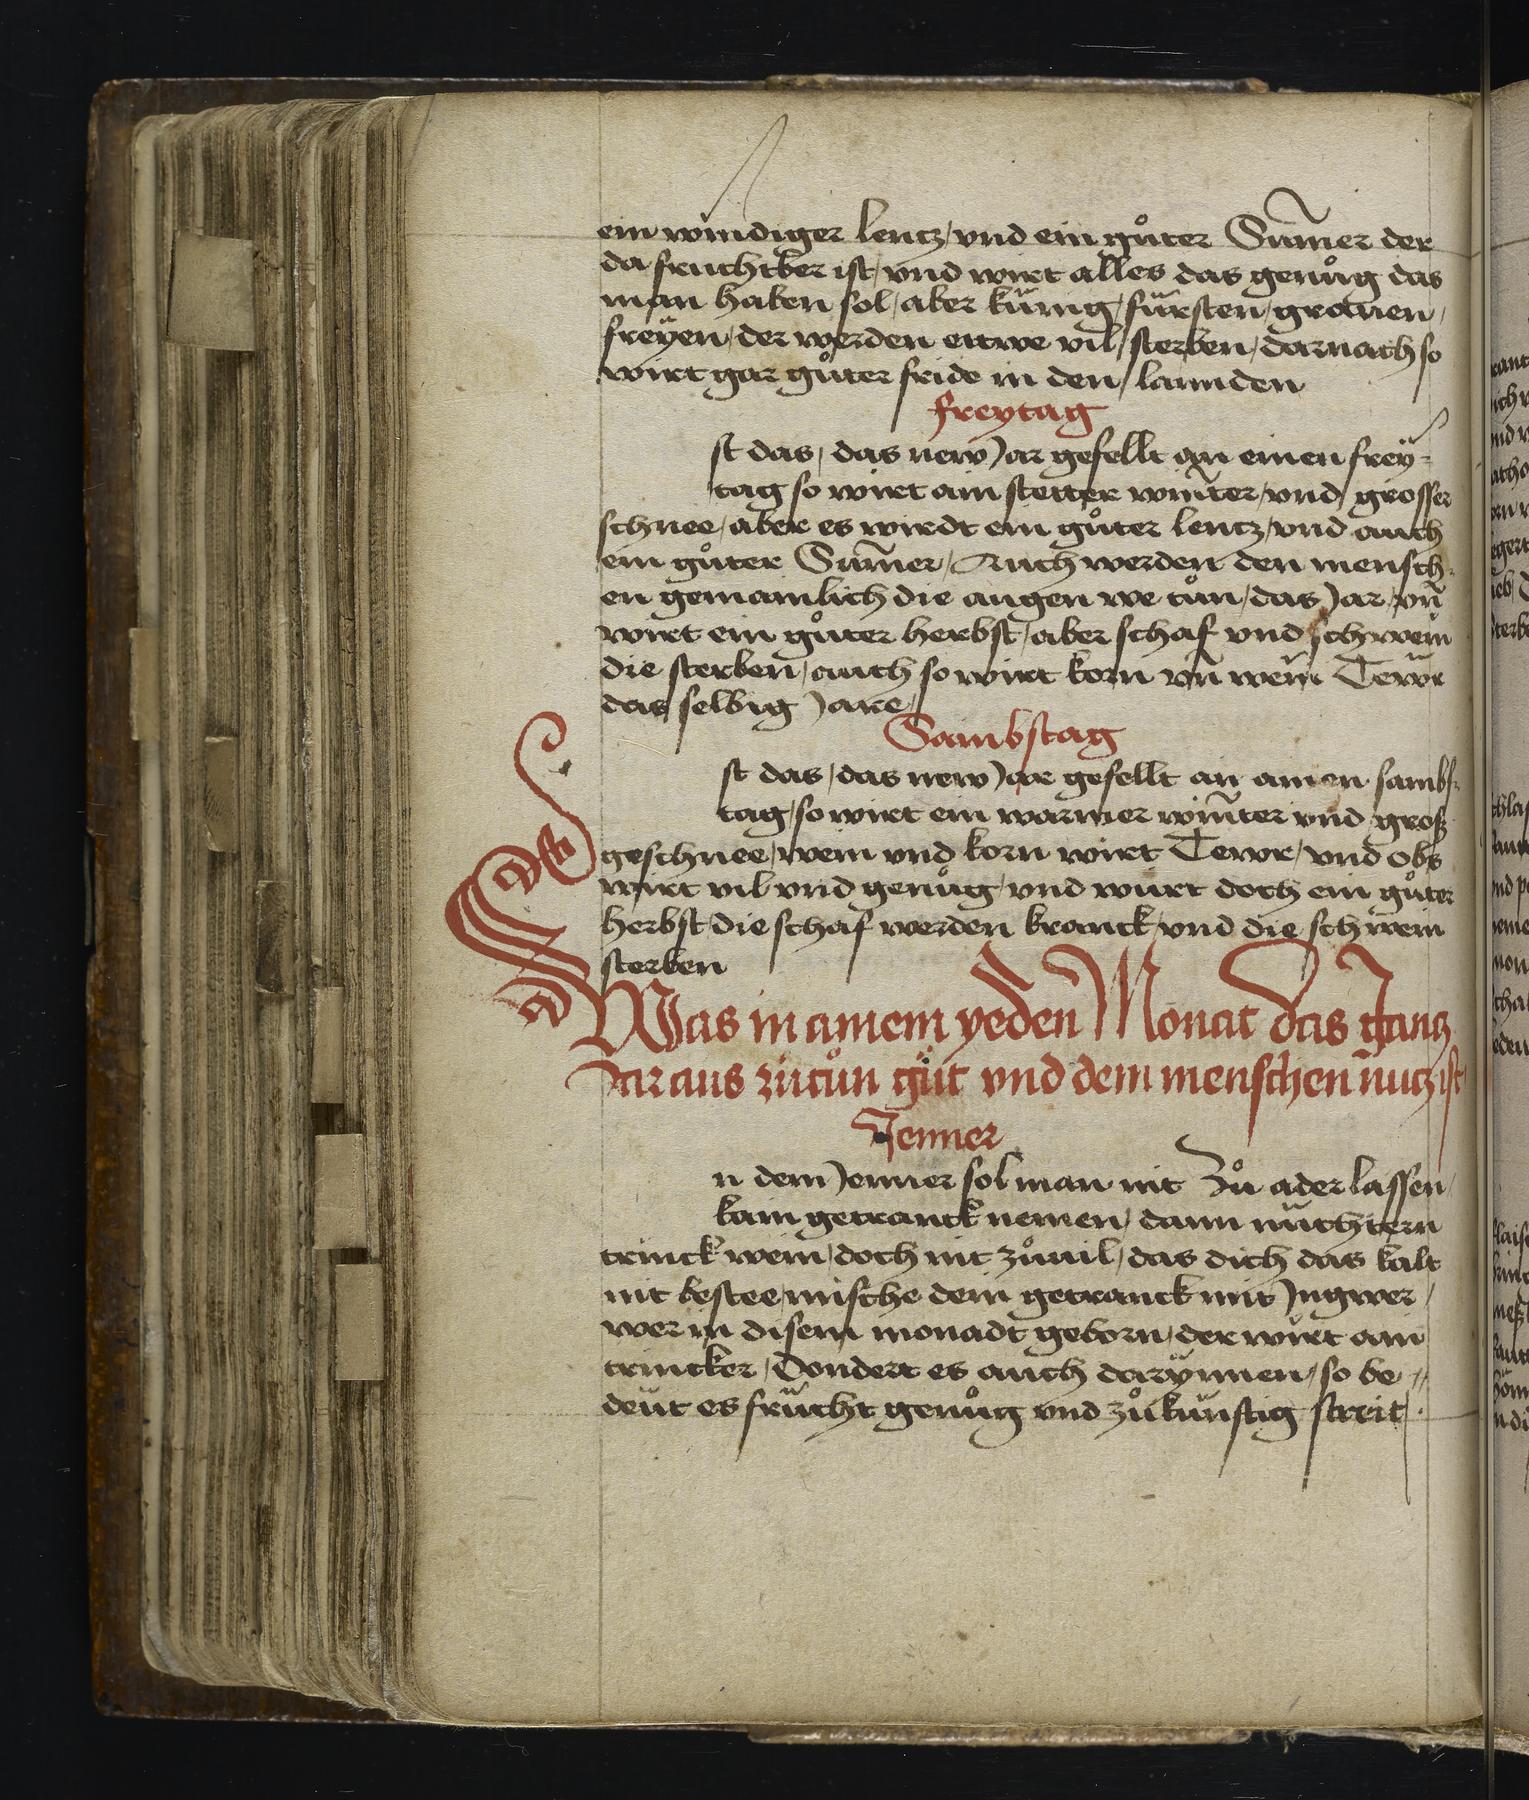 ein windiger lentz/ vnd ein gůter Sum̄er der
da fruchtber ist/ vnd wirt alles das genůg das
man haben sol/ aber künig/ fürsten/ grauen/
freÿen/ der werden ettwe vil/ sterben/ darnach so
wirt gar gůter fride in den/ lannden
freytag
st das/ das new Jar gefellt an einen freÿ-
tag so wirt ain stetter win̄ter/ vnd/ grosser
schnee/ aber es wirdt ein gůter lentz/ vnd auch
ein gůter Sum̄er/ Auch werden den mensch-
en gemainlich die augen we tůn/ das Jar/ vn̄
wirt ein gůter herbst/ aber schaf vnd schwein
die sterben/ auch so wirt korn vn̄ wein Tewr
das selbig Jare/
Sambstag
st das/ das new Jar gefellt an ainen sambs-
tag/ so wirt ein warmer win̄ter vnd groß
geschnee/ wein vnd korn wirt Tewr/ vnd obs
wirt vil vnd genůg/ vnd wirt doch ein gůter
herbst/ die schaf werden kranck/ vnd die schwein
sterben
Was in ainem yeden Monat das gantz
Jar aus zutůn gůt vnd dem menschen nutz ist
Jenner
n dem Jenner sol man nit Zů ader lassen/
kain getranck nemen/ dann nüchtern
trinck wein/ doch nit zůuil/ das dich das kalt
nit bestee/ mische dein getranck mit Jngwer/
wer in disem monadt geborn/ der wirt ain
trincker/ Dondert es auch darÿnnen/ so be-
deüt es frücht genůg vnd zůkünftig streit/.